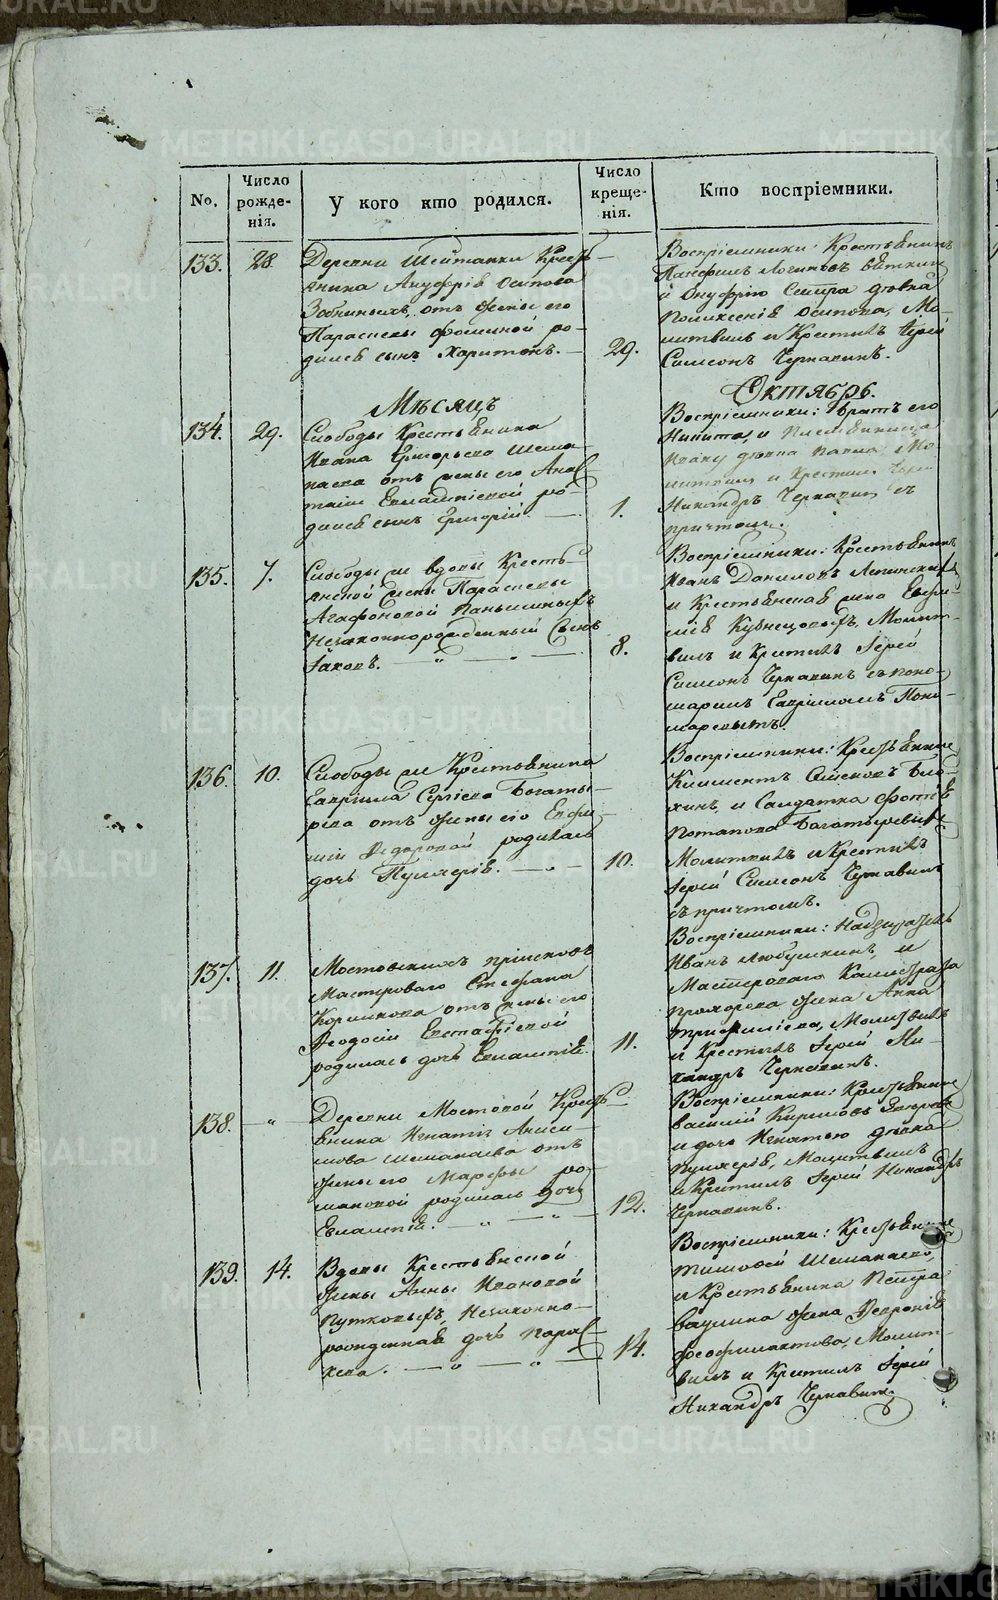 METRIKI.GASO-URAL.RU
No.
Число рожде-нія.
У кого кто родился.
Число креще-нія.
Кто воспріемники.
133.
28.
Деревни Шейтанки Кресть-
янина Ануфрія Осипова
отъ жены его
Параскевы Фоминой ро-
дился сынъ Харитонъ.
29.
Воспріемники: Крестьянинъ
Памфилъ Логиновъ
и Онуфрію Сестра девка
Поликсенія Осипова, Мо-
литвилъ и Крестилъ Іерей
Симеонъ Чернавинъ.
Мѣсяцъ
Октябрь.
134.
29.
Слободы Крестьянина
Ивана Григорьева Шема-
наева отъ жены его Анас-
тасіи Евлампіевой ро-
дился сынъ Григорій.
1.
Воспріемники: братъ его
Никита, и Племянница
Ивану девка Мо-
литвилъ и Крестилъ Іерей
Никандръ Чернавин съ
причтом.
135.
7.
Слободы сей вдовы Кресть-
янской жены Параскевы
Агафоновой Паньшиныхъ
Незаконнорожденный Сынъ
Іаковъ.
8.
Воспріемники: Крестьянинъ
Иванъ Даниловъ
и Крестьянская жена Евфи-
мія Кузнецовыхъ, Молит-
вилъ и Крестилъ Іерей
Симеонъ Чернавинъ съ поно-
маремъ Гавріиломъ Поно-
маревымъ.
136.
10.
Слободы сей Крестьянина
Гавріила Сергіева Богаты-
рева отъ жены его Евфи-
міи Ѳедоровой родилась
дочь Пульхерія.
10.
Воспріемники: Крестьянинъ
Климентъ
и Солдатка Фотія
Потапова Богатыревыхъ
Молитвилъ и Крестилъ
Іерей Симеонъ Чернавинъ
съ причтомъ.
137.
11.
Мостовскихъ пріисковъ
Мастероваго Стефана
Кормикова отъ жены его
Ѳеодосіи Евстафіевой
родилась дочь Евлампія.
11.
Воспріемники: Надзиратель
Иванъ Любушкинъ, и
Мастероваго Калистрата
Прохорова жена Анна
Трифиліева, Молитвилъ
и Крестилъ Іерей Ни-
кандръ Чернавинъ.
138.
"
Деревни Мостовой Кресть-
янина Игнатія Аниси-
мова Шеманаева отъ
жены его Марѳы Ро-
мановой родилась дочь
Евлампія.
12.
Воспріемники: Крестьянинъ
Василій Кириловъ
и дочь Игнатью девка
Пульхерія, Молитвилъ
и Крестилъ Іерей Никандръ
Чернавинъ.
139.
14.
Вдовы Крестьянской
жены Анны Ивановой
Путковыхъ, Незаконно-
рожденная дочь Парас-
кева.
14.
Воспріемники: Крестьянинъ
Тимофей Шеманаевъ,
и Крестьянина Петра
Ваулина жена Ѳевронія
Феофилактова, Молит-
вилъ и Крестилъ Іерей
Никандръ Чернавин.